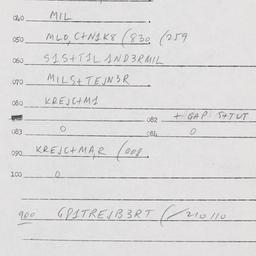 040 MIL
050 MLO, C+N1K8 (830 (259
060 S1S+T1L 1ND3RMIL
070 MILS+TEJN3R
080 KREJC+M1
082 + GAP S+TUT
083 0 084 0
090 KREJC+MA,R (008
100 0
900 GP1TREJB3RT (210 110